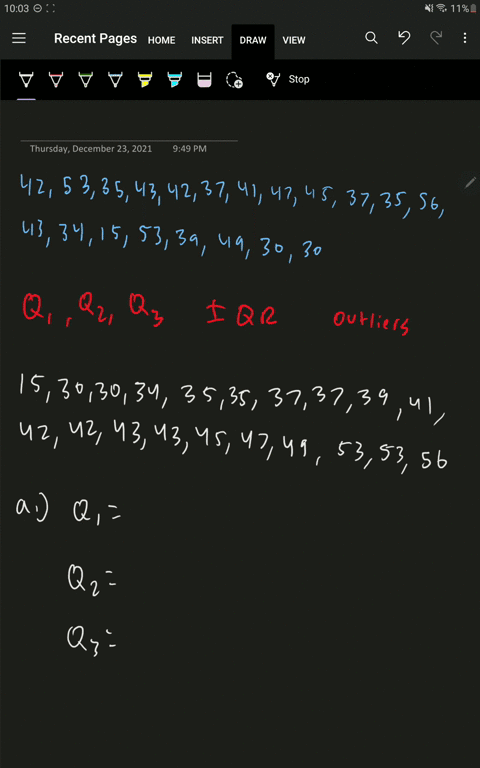 10:03 11%
Recent Pages HOME INSERT DRAW VIEW
Stop
Thursday, December 23, 2021 9:49 PM
42, 53, 35, 43, 42, 37, 41, 47, 45, 37, 35, 56,
43, 34, 15, 53, 39, 49, 30, 30
Q1, Q2, Q3 IQR outliers
15, 30, 30, 34, 35, 35, 37, 37, 39, 41,
42, 42, 43, 43, 45, 47, 49, 53, 53, 56
a.) Q1=
Q2=
Q3=